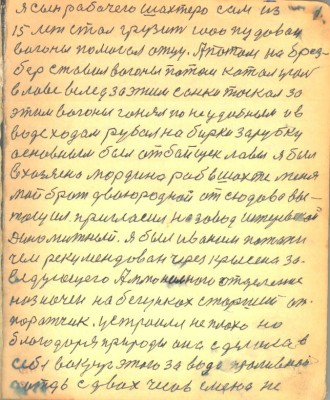 Я сын рабочего шахтера сам из
15 лет стал грузить 1000 пудовои
вагоны помогал отцу. А потом на брез-
бер ставил вагоны потом катал угол
в лаве вслед за этим санки тоскал за
этим вагоны гонял по неудобным и в
водсходам рубал на бирки зарубку
основным был отбайщик лавы я был
в хозяена Мордина раб в шахте меня
мой брат двоюродной отсюдова вы-
тощил пригласил на завод
Диномитный. Я был
чем рекумендован через крыс за-
ведующего отделение
назначен на бегунках старший ап-
поратчик. устроился не плохо но
благодоря природы она сделала в
себя вокруг этого заводо проливной
дождь с двох часов смена не